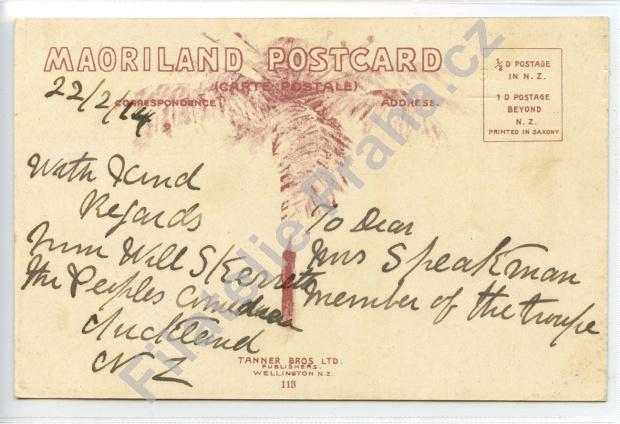 MAORILAND POSTCARD
(CARTE POSTALE)
CORRESPONDENCE
ADDRESS.
½ D POSTAGE
IN N.Z.
1 D POSTAGE
BEYOND
N.Z.
PRINTED IN SAXONY
22/2/14
With Kind
Regards
from Will Skerrets
The Peoples Comedian
Auckland
NZ
To Dear
Mrs Speakman
member of the troupe
TANNER BROS LTD.
PUBLISHERS.
WELLINGTON N.Z.
113
Filatelie-Praha.cz